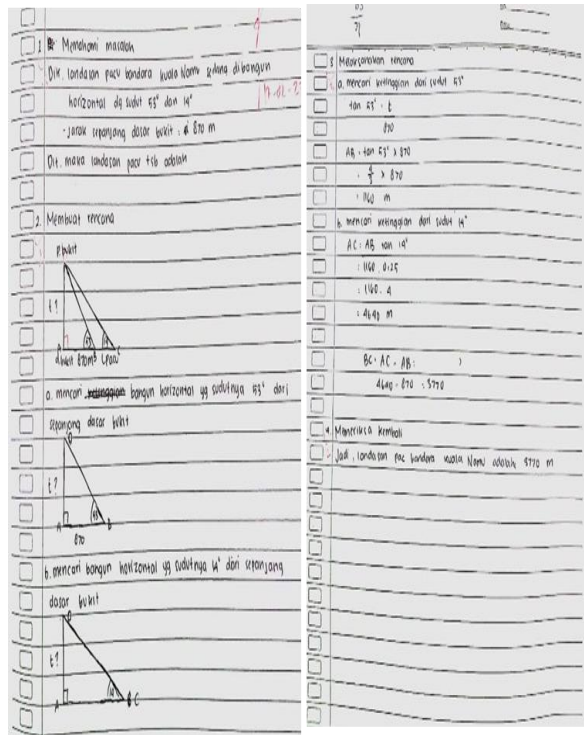 1. Memahami masalah
Dik. landasan pacu bandara kuala Namu sedang dibangun
horizontal dg sudut 53° dan 14°
- Jarak sepanjang dasar bukit : 870 m
Dit. maka landasan pacu tsb adalah
2. Membuat rencana
P. bukit
t?
53 14
d. bukit 870 m B C pacu
a. mencari ketinggian bangun horizontal yg sudutnya 53° dari
sepanjang dasar bukit
D
t?
53
A B
870
b. mencari bangun horizontal yg sudutnya 14° dari sepanjang
dasar bukit
D
t?
14
A C
3 Melaksanakan rencana
a. mencari ketinggian dari sudut 53°
tan 53° = t
870
AB = tan 53° x 870
= 4/3 x 870
= 1160 m
b. mencari ketinggian dari sudut 14°
AC = AB tan 14°
= 1160 . 0,25
= 1160 . 4
= 4640 m
BC = AC - AB =
4640 - 870 = 3770
4. Memeriksa kembali
Jadi, landasan pac bandara kuala Namu adalah 3770 m